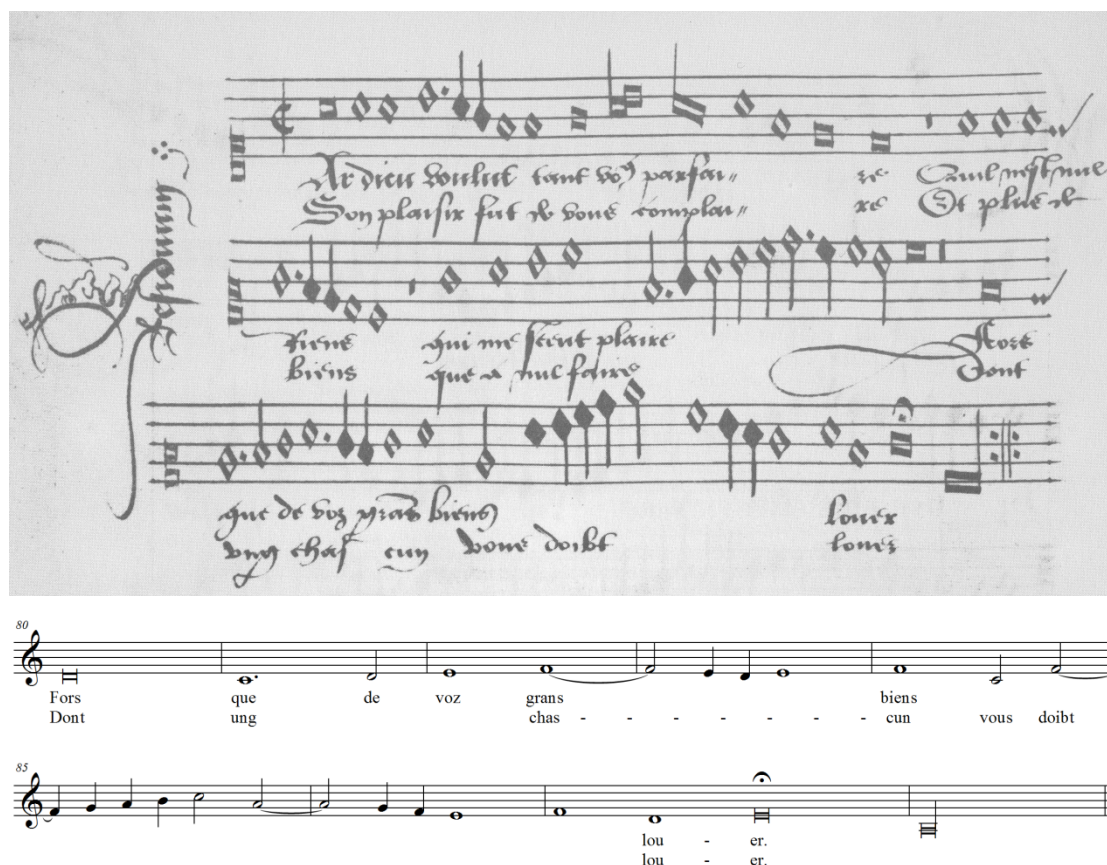 Residuum
Ar dieu voulut tant vo⁹ parfai= re Quil nest nul
Son plaisir fut de vous complai= re Et plus de
Riens qui me sceut plaire Fors
biens que a nul faire Dont
que de voz grãs biens louer
ung chas cun vous doibt louer
80
Fors que de voz grans biens
Dont ung chas - - - - - - - - cun vous doibt
85
lou - er.
lou - er.